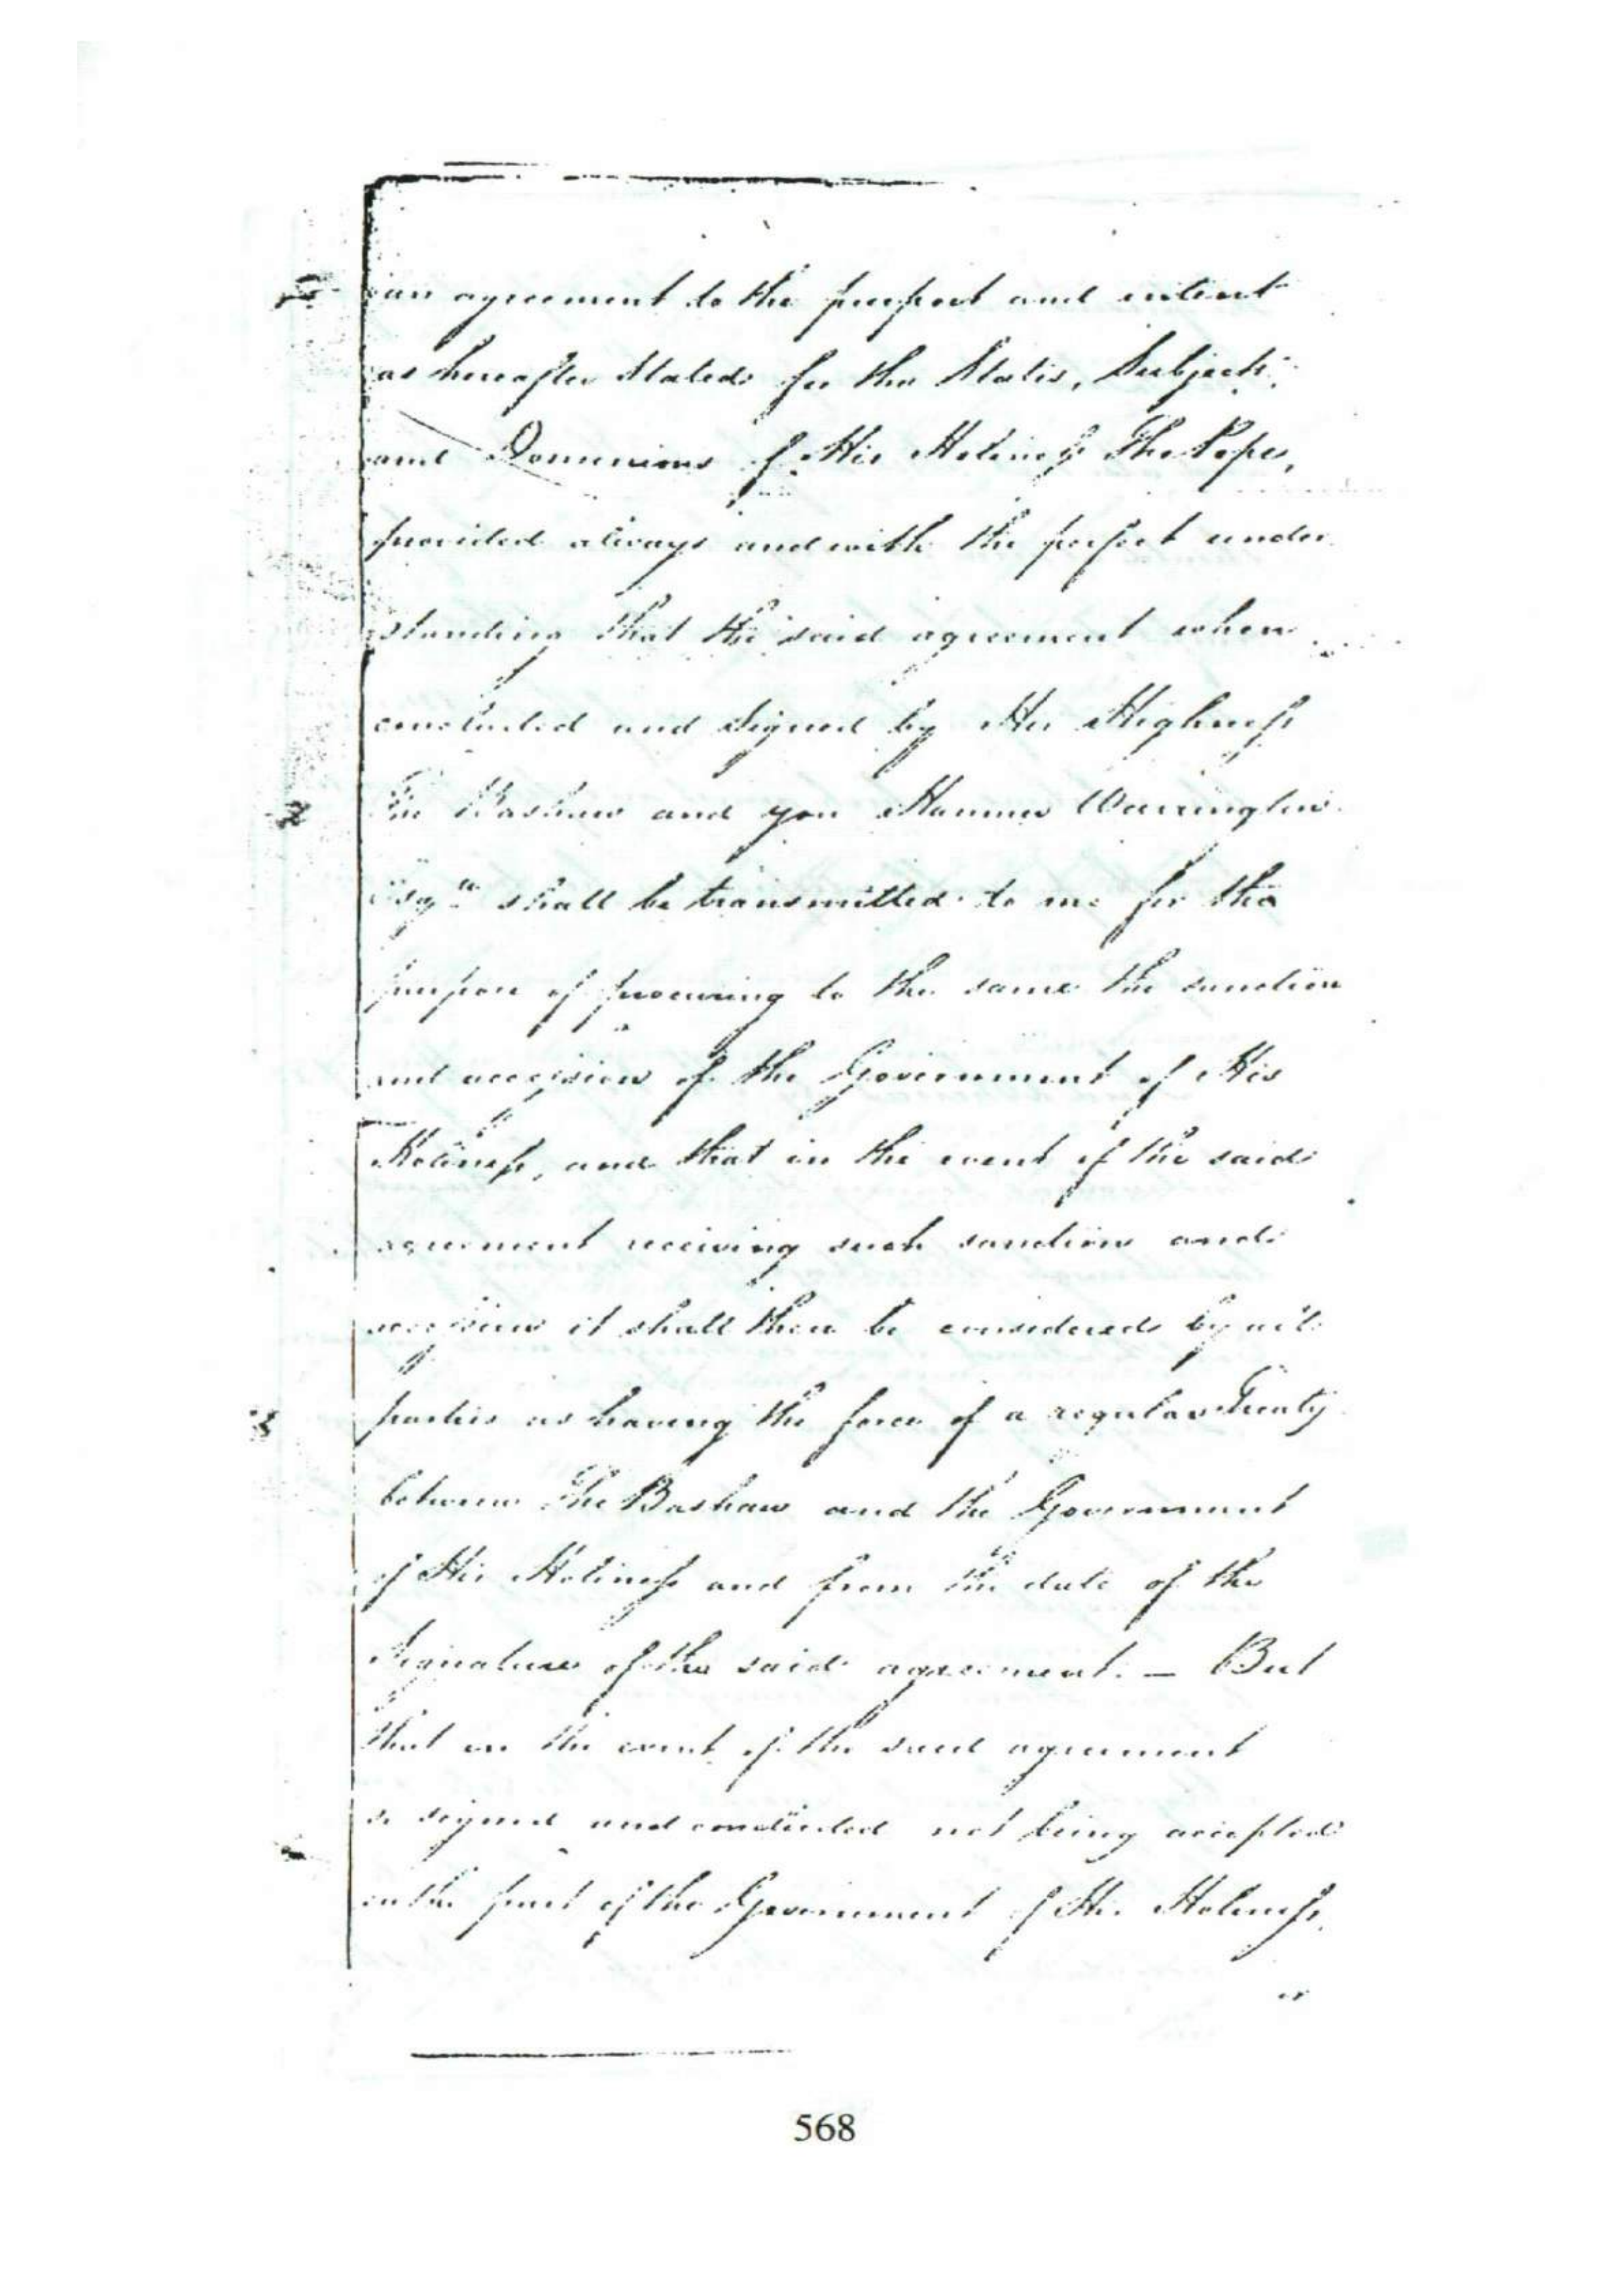 an agreement to the purport and intent
as hereafter Stated for the States, Subjects,
and Dominions of His Holiness The Pope,
provided always and with the perfect under
standing that the said agreement when
concluded and Signed by His Highness
The Bashaw and you Hanmer Warrington
Esqre shall be transmitted to me for the
purpose of procuring to the same the sanction
and accession of the Government of His
Holiness, and that in the event of the said
agreement receiving such sanction and
accession it shall then be considered by all
parties as having the force of a regular Treaty
between The Bashaw and the Government
of His Holiness and from the date of the
Signature of the said agreement. — But
that in the event of the said agreement
so signed and concluded not being accepted
on the part of the Government of His Holiness,
or
568